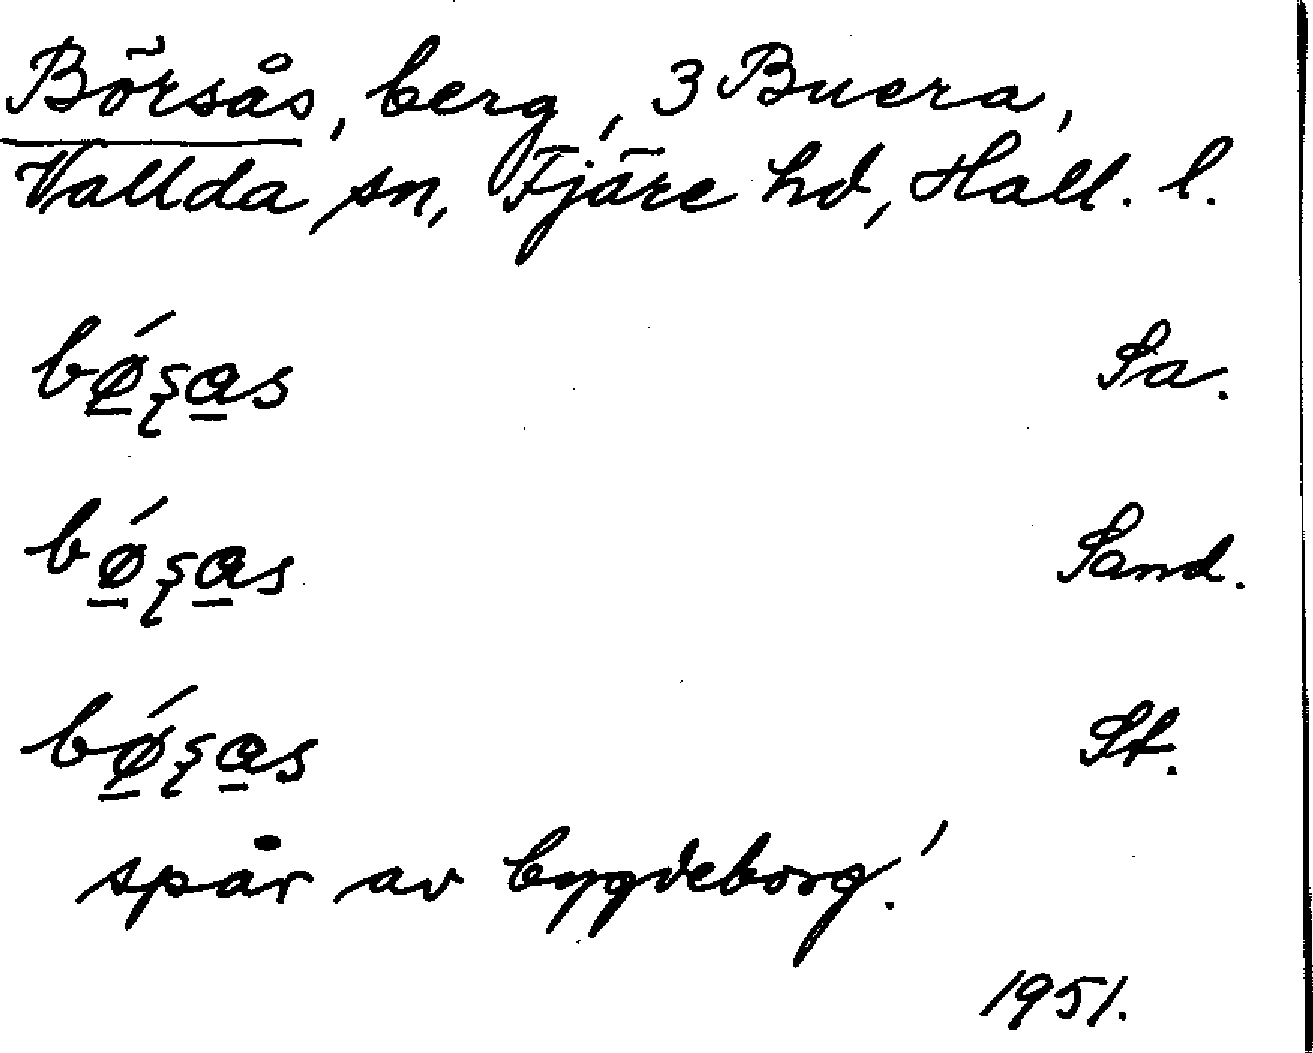 Börsås, berg, 3 Buera,
Vallda sn, Fjäre hd, Hall. l.
bǿʂas Sa.
bǿʂas Sand.
bǿʂas St.
spår av bygdeborg!
1951.